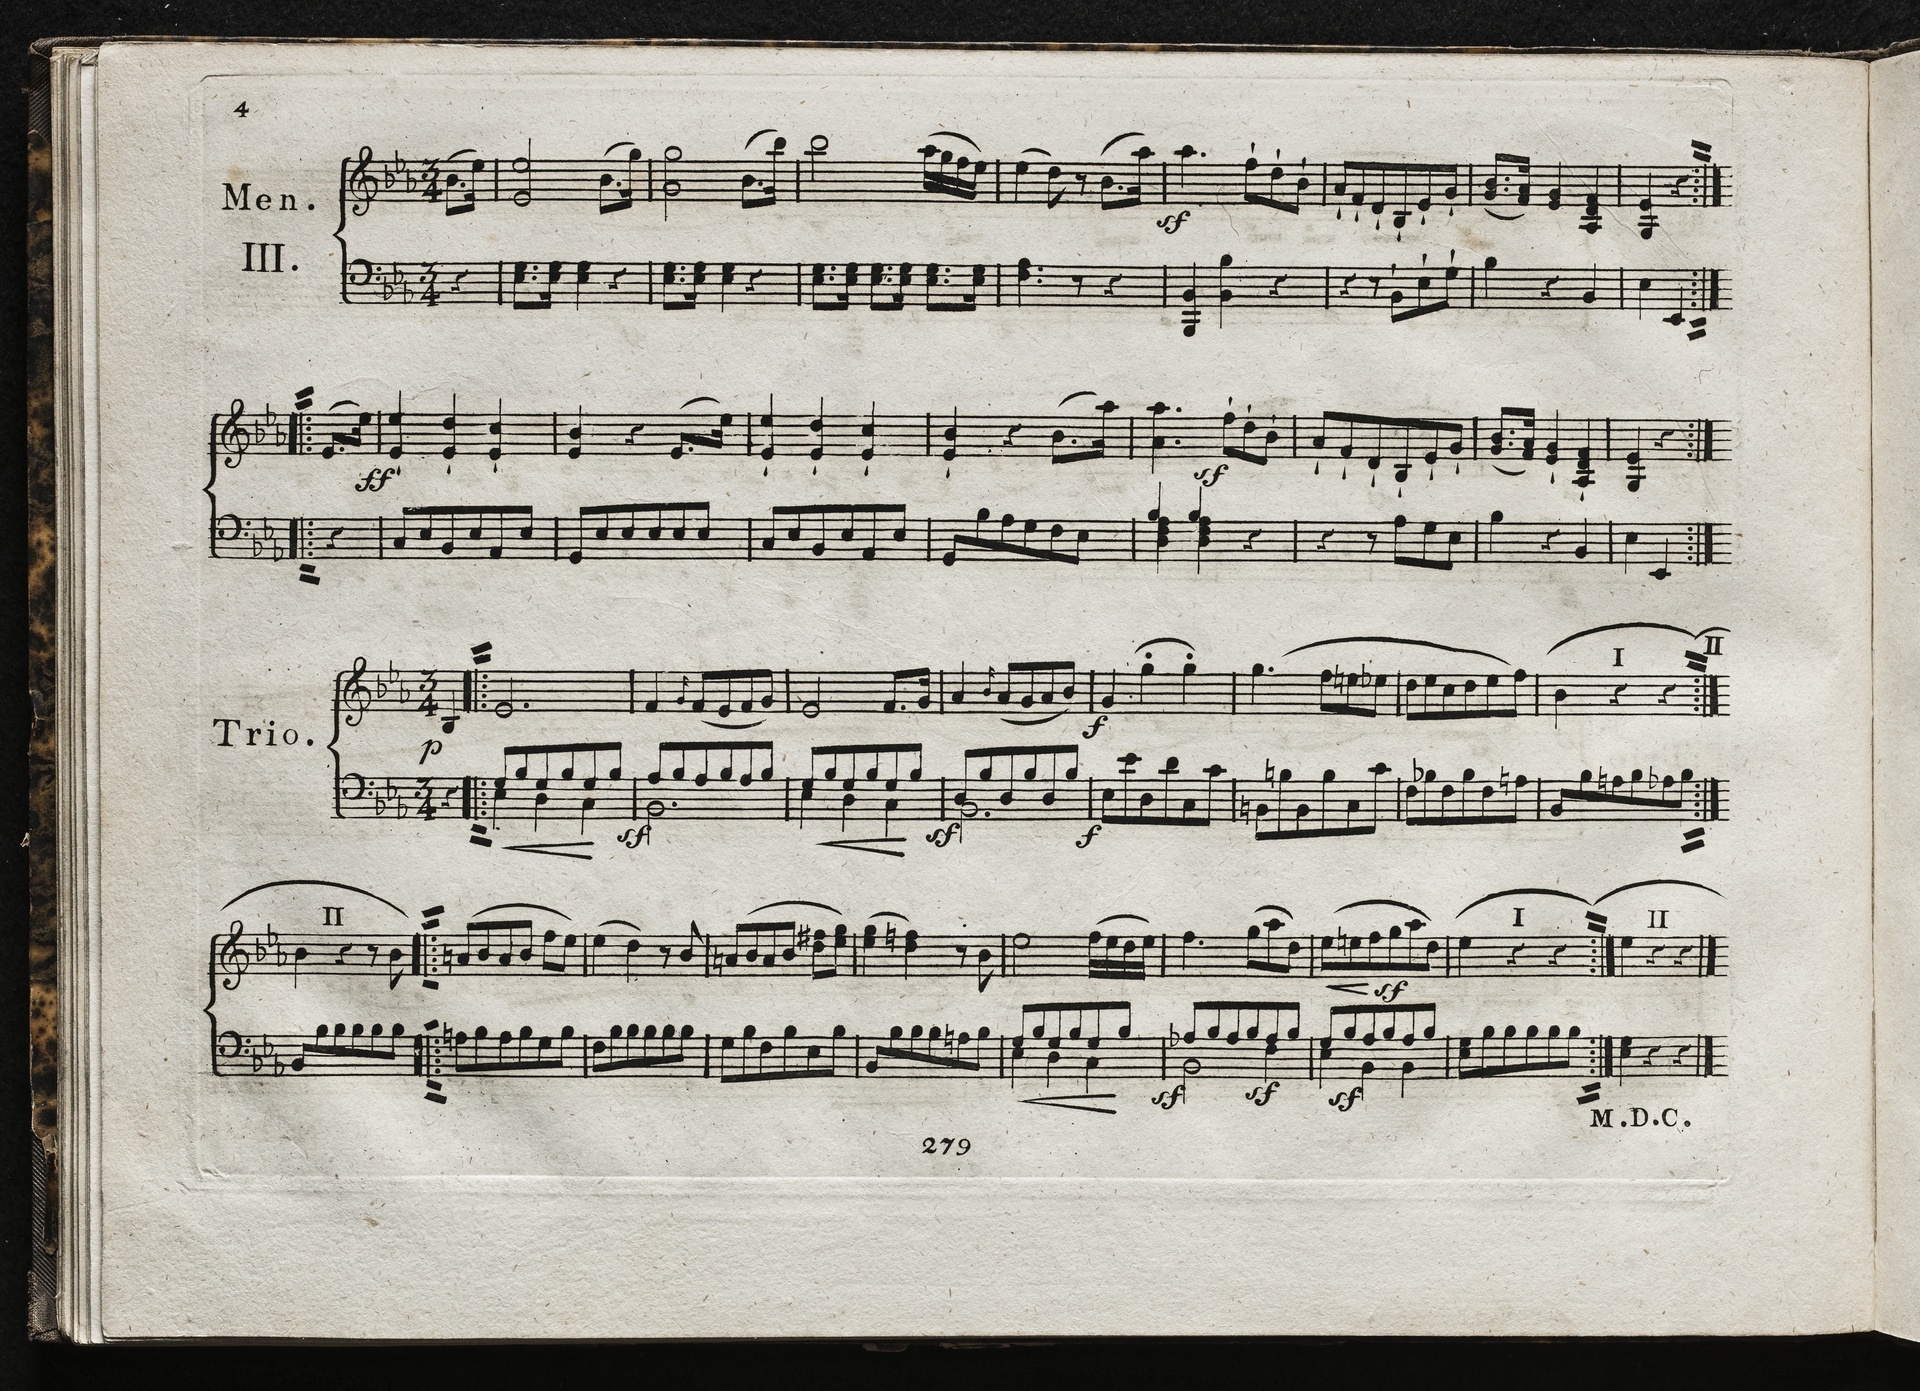 4
Men.
III.
3/4
sf
3/4
ff sf
I II
3/4
Trio.
p f
3/4
sf sf f
II I II
sf
sf sf sf
M.D.C.
279